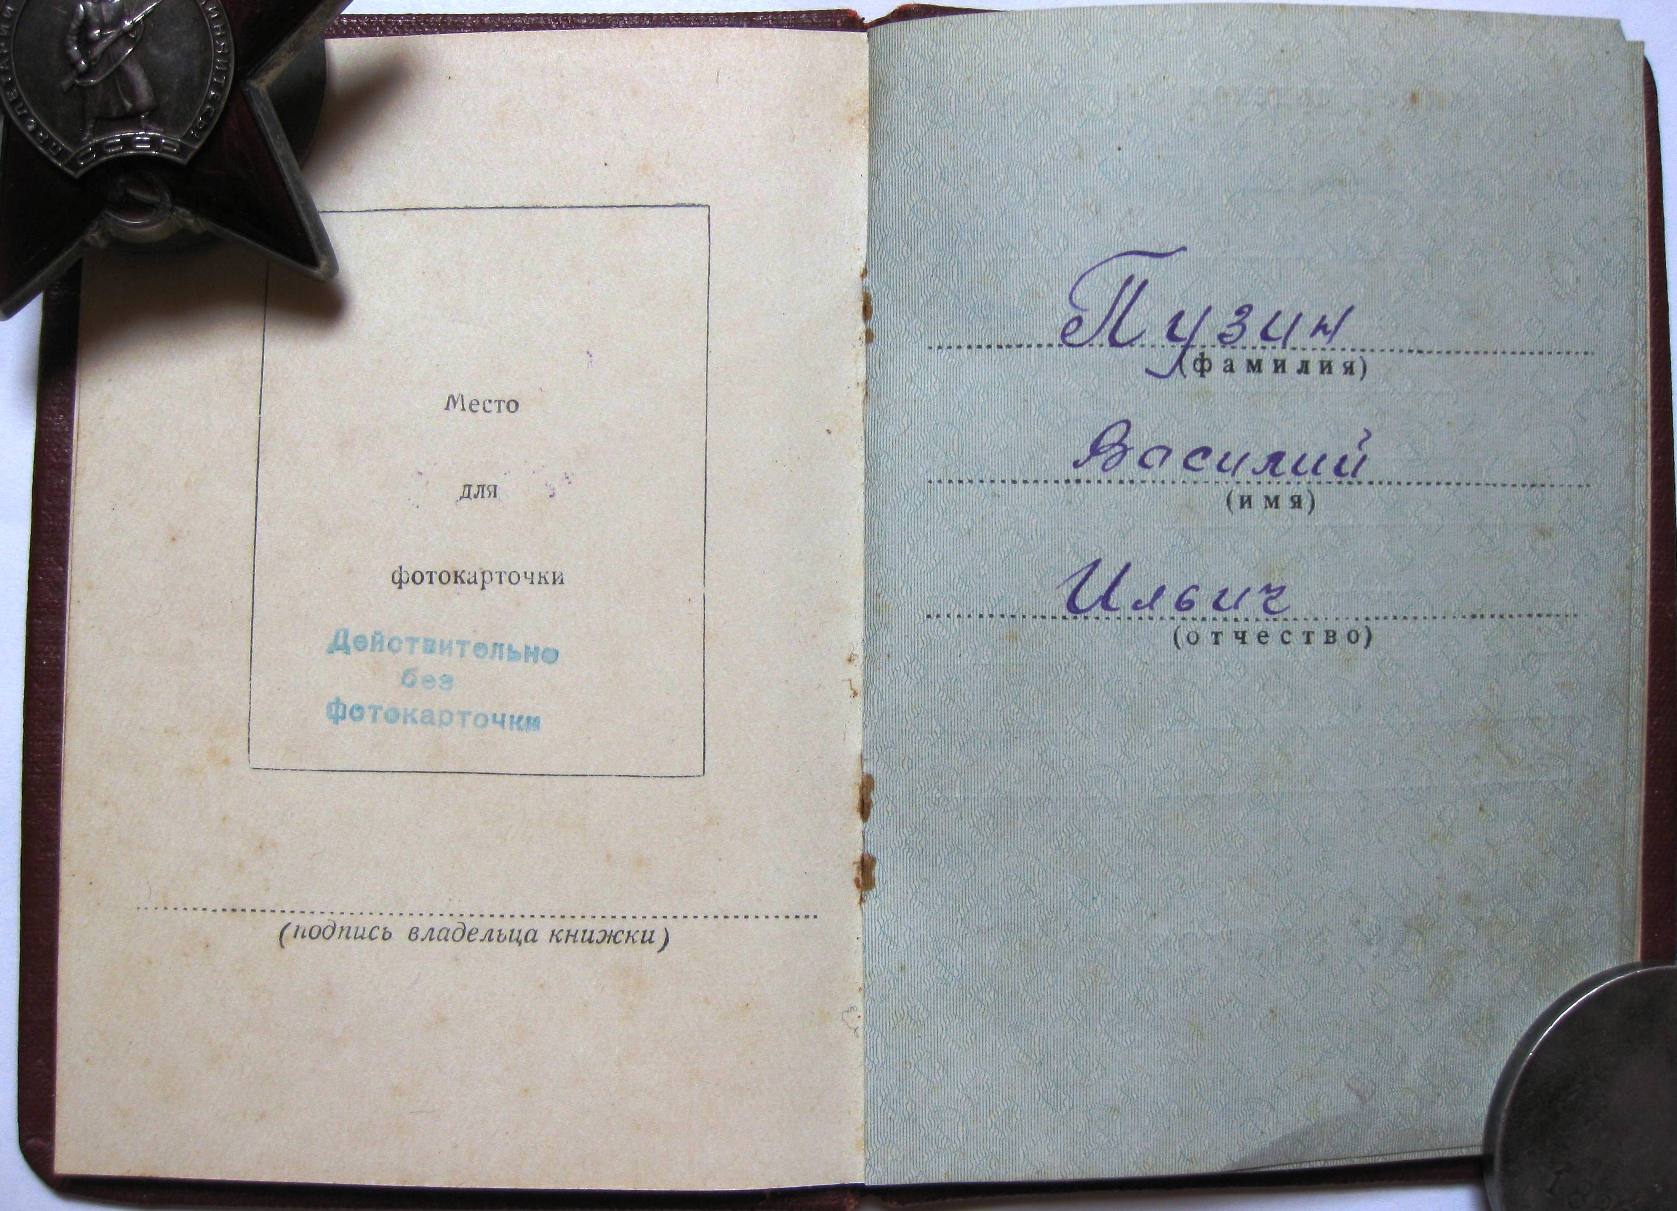 СССР
Место
для
фотокарточки
Действительно
без
фотокарточки
(подпись владельца книжки)
Пузин
(фамилия)
Василий
(имя)
Ильич
(отчество)